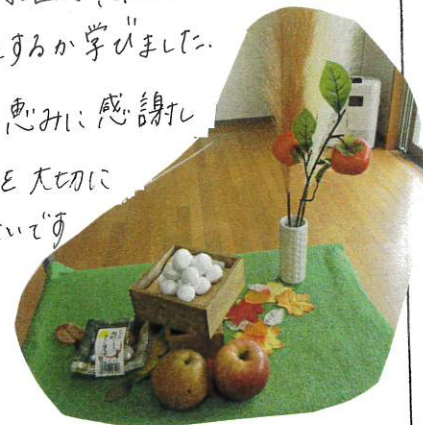 するか学びました.
恵みに感謝し
を大切に
いです